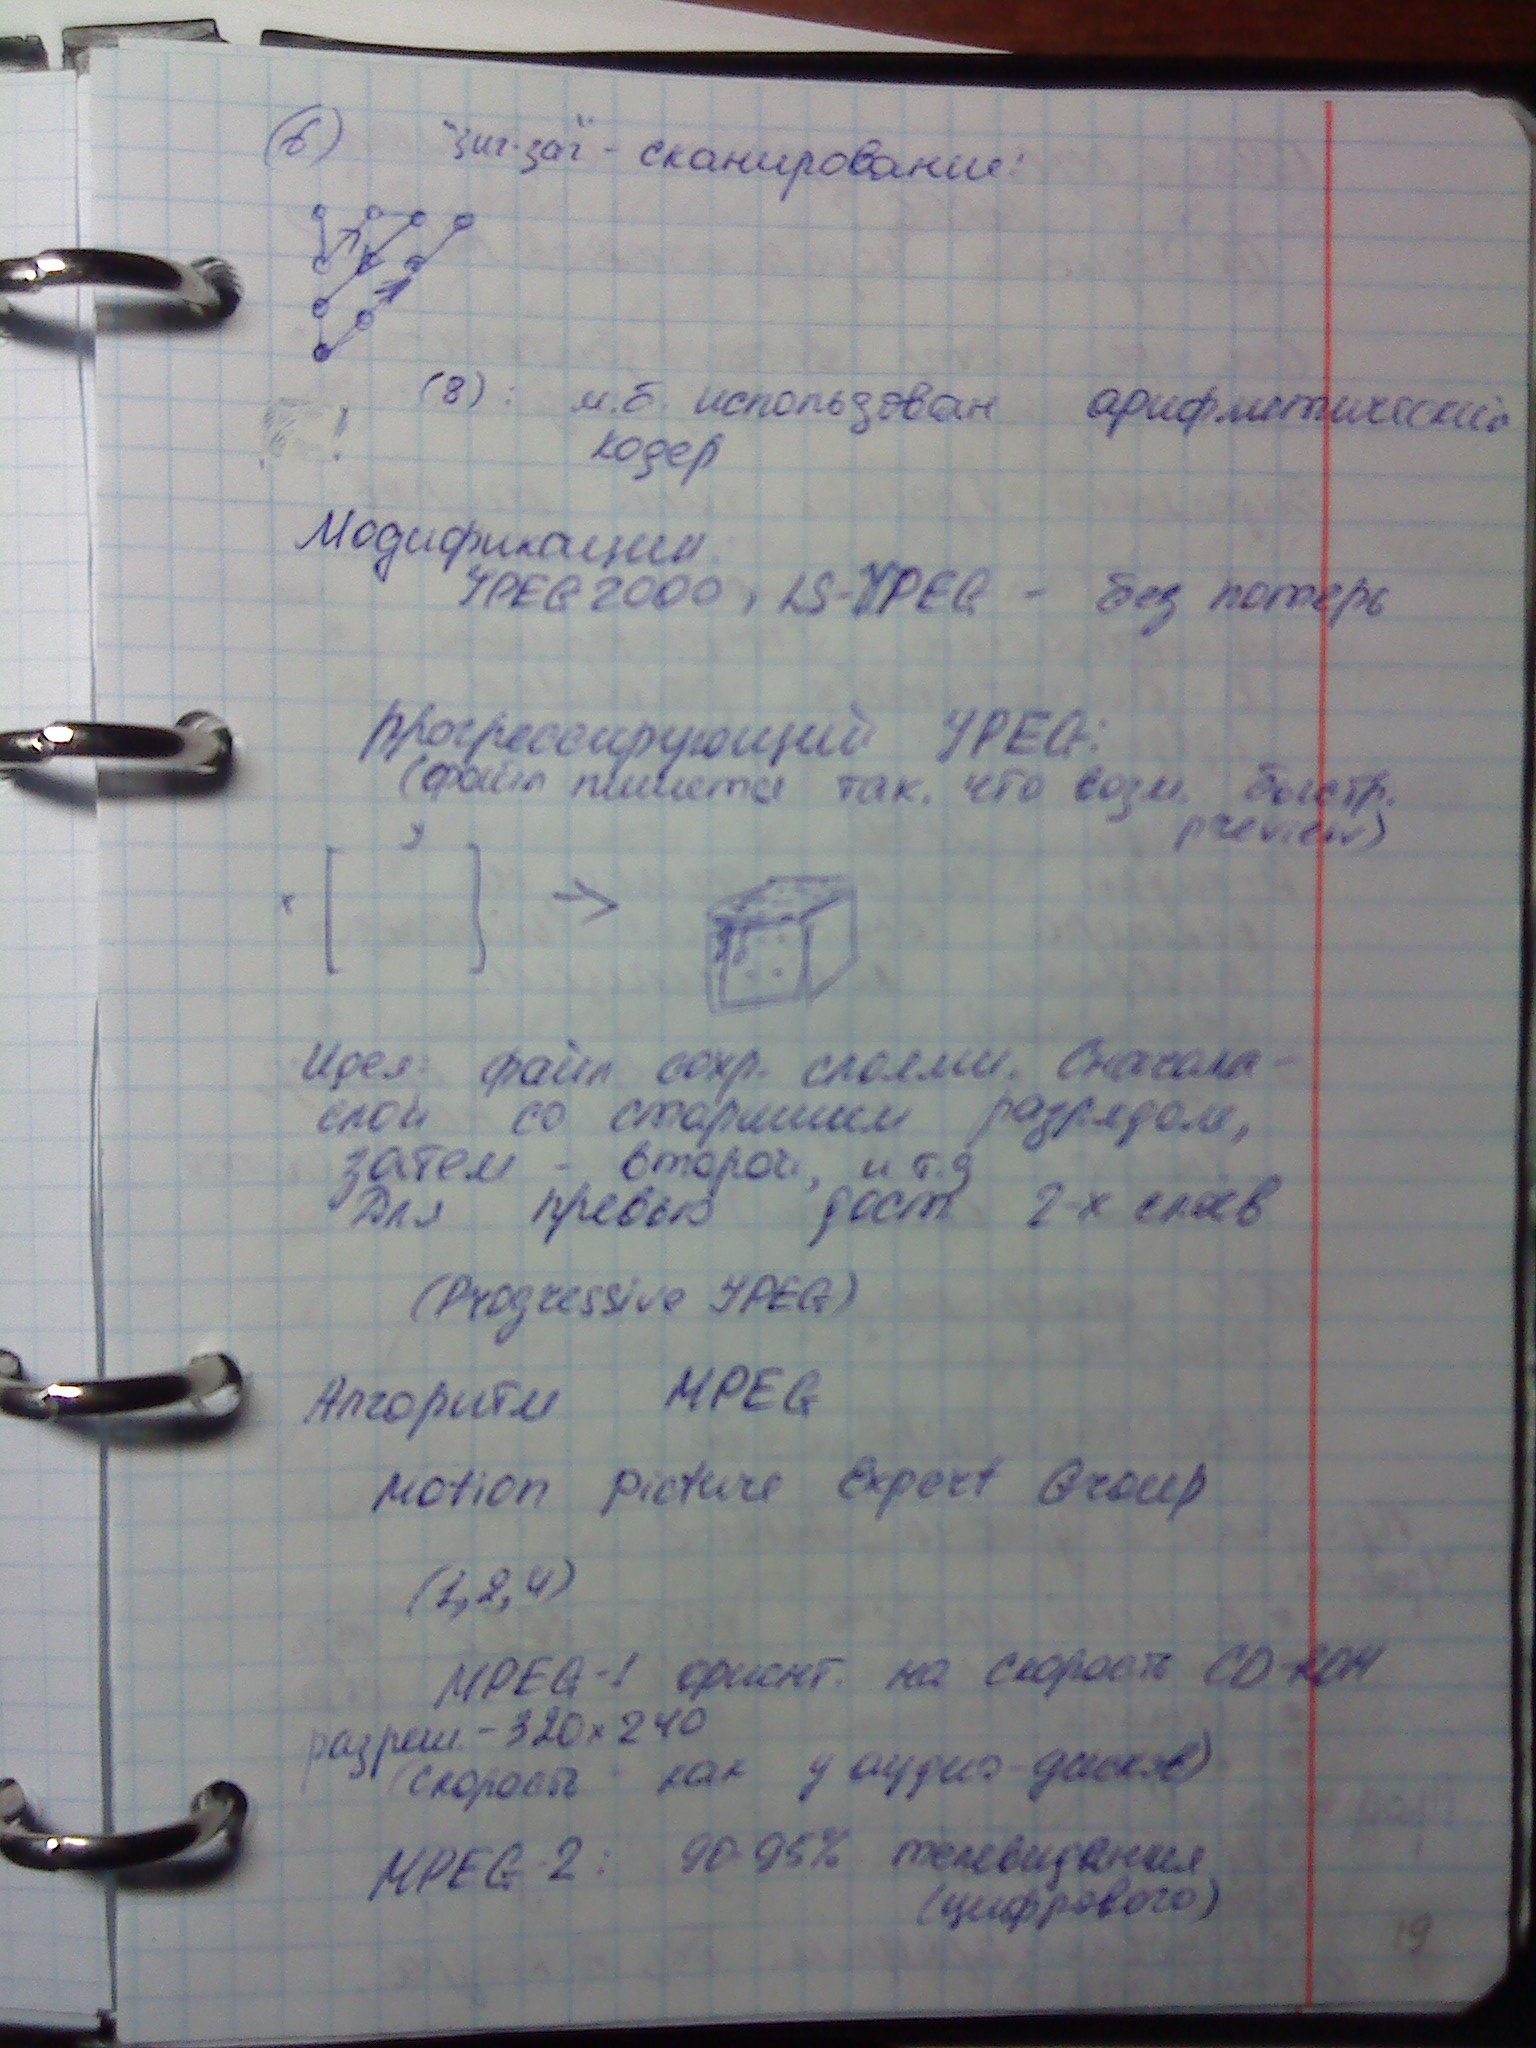 (6) "зиг-заг" - сканирование:
(8): м.б. использован арифметический
кодер
Модификации:
JPEG 2000, LS-JPEG - без потерь
Прогрессирующий JPEG:
(файл пишется так, что возм. быстр.
preview)
x y
Идея: файл сохр. слоями. Сначала -
слой со старшим разрядом,
затем - второй, и т.д
Для превью дост 2-х слоев
(Progressive JPEG)
Алгоритм MPEG
Motion Picture Expert Group
(1, 2, 4)
MPEG-1 ориент. на скорость CD-ROM
разреш. - 320x240
(скорость как у аудио-дисков)
MPEG-2: 90-95% телевидения
(цифрового)
19